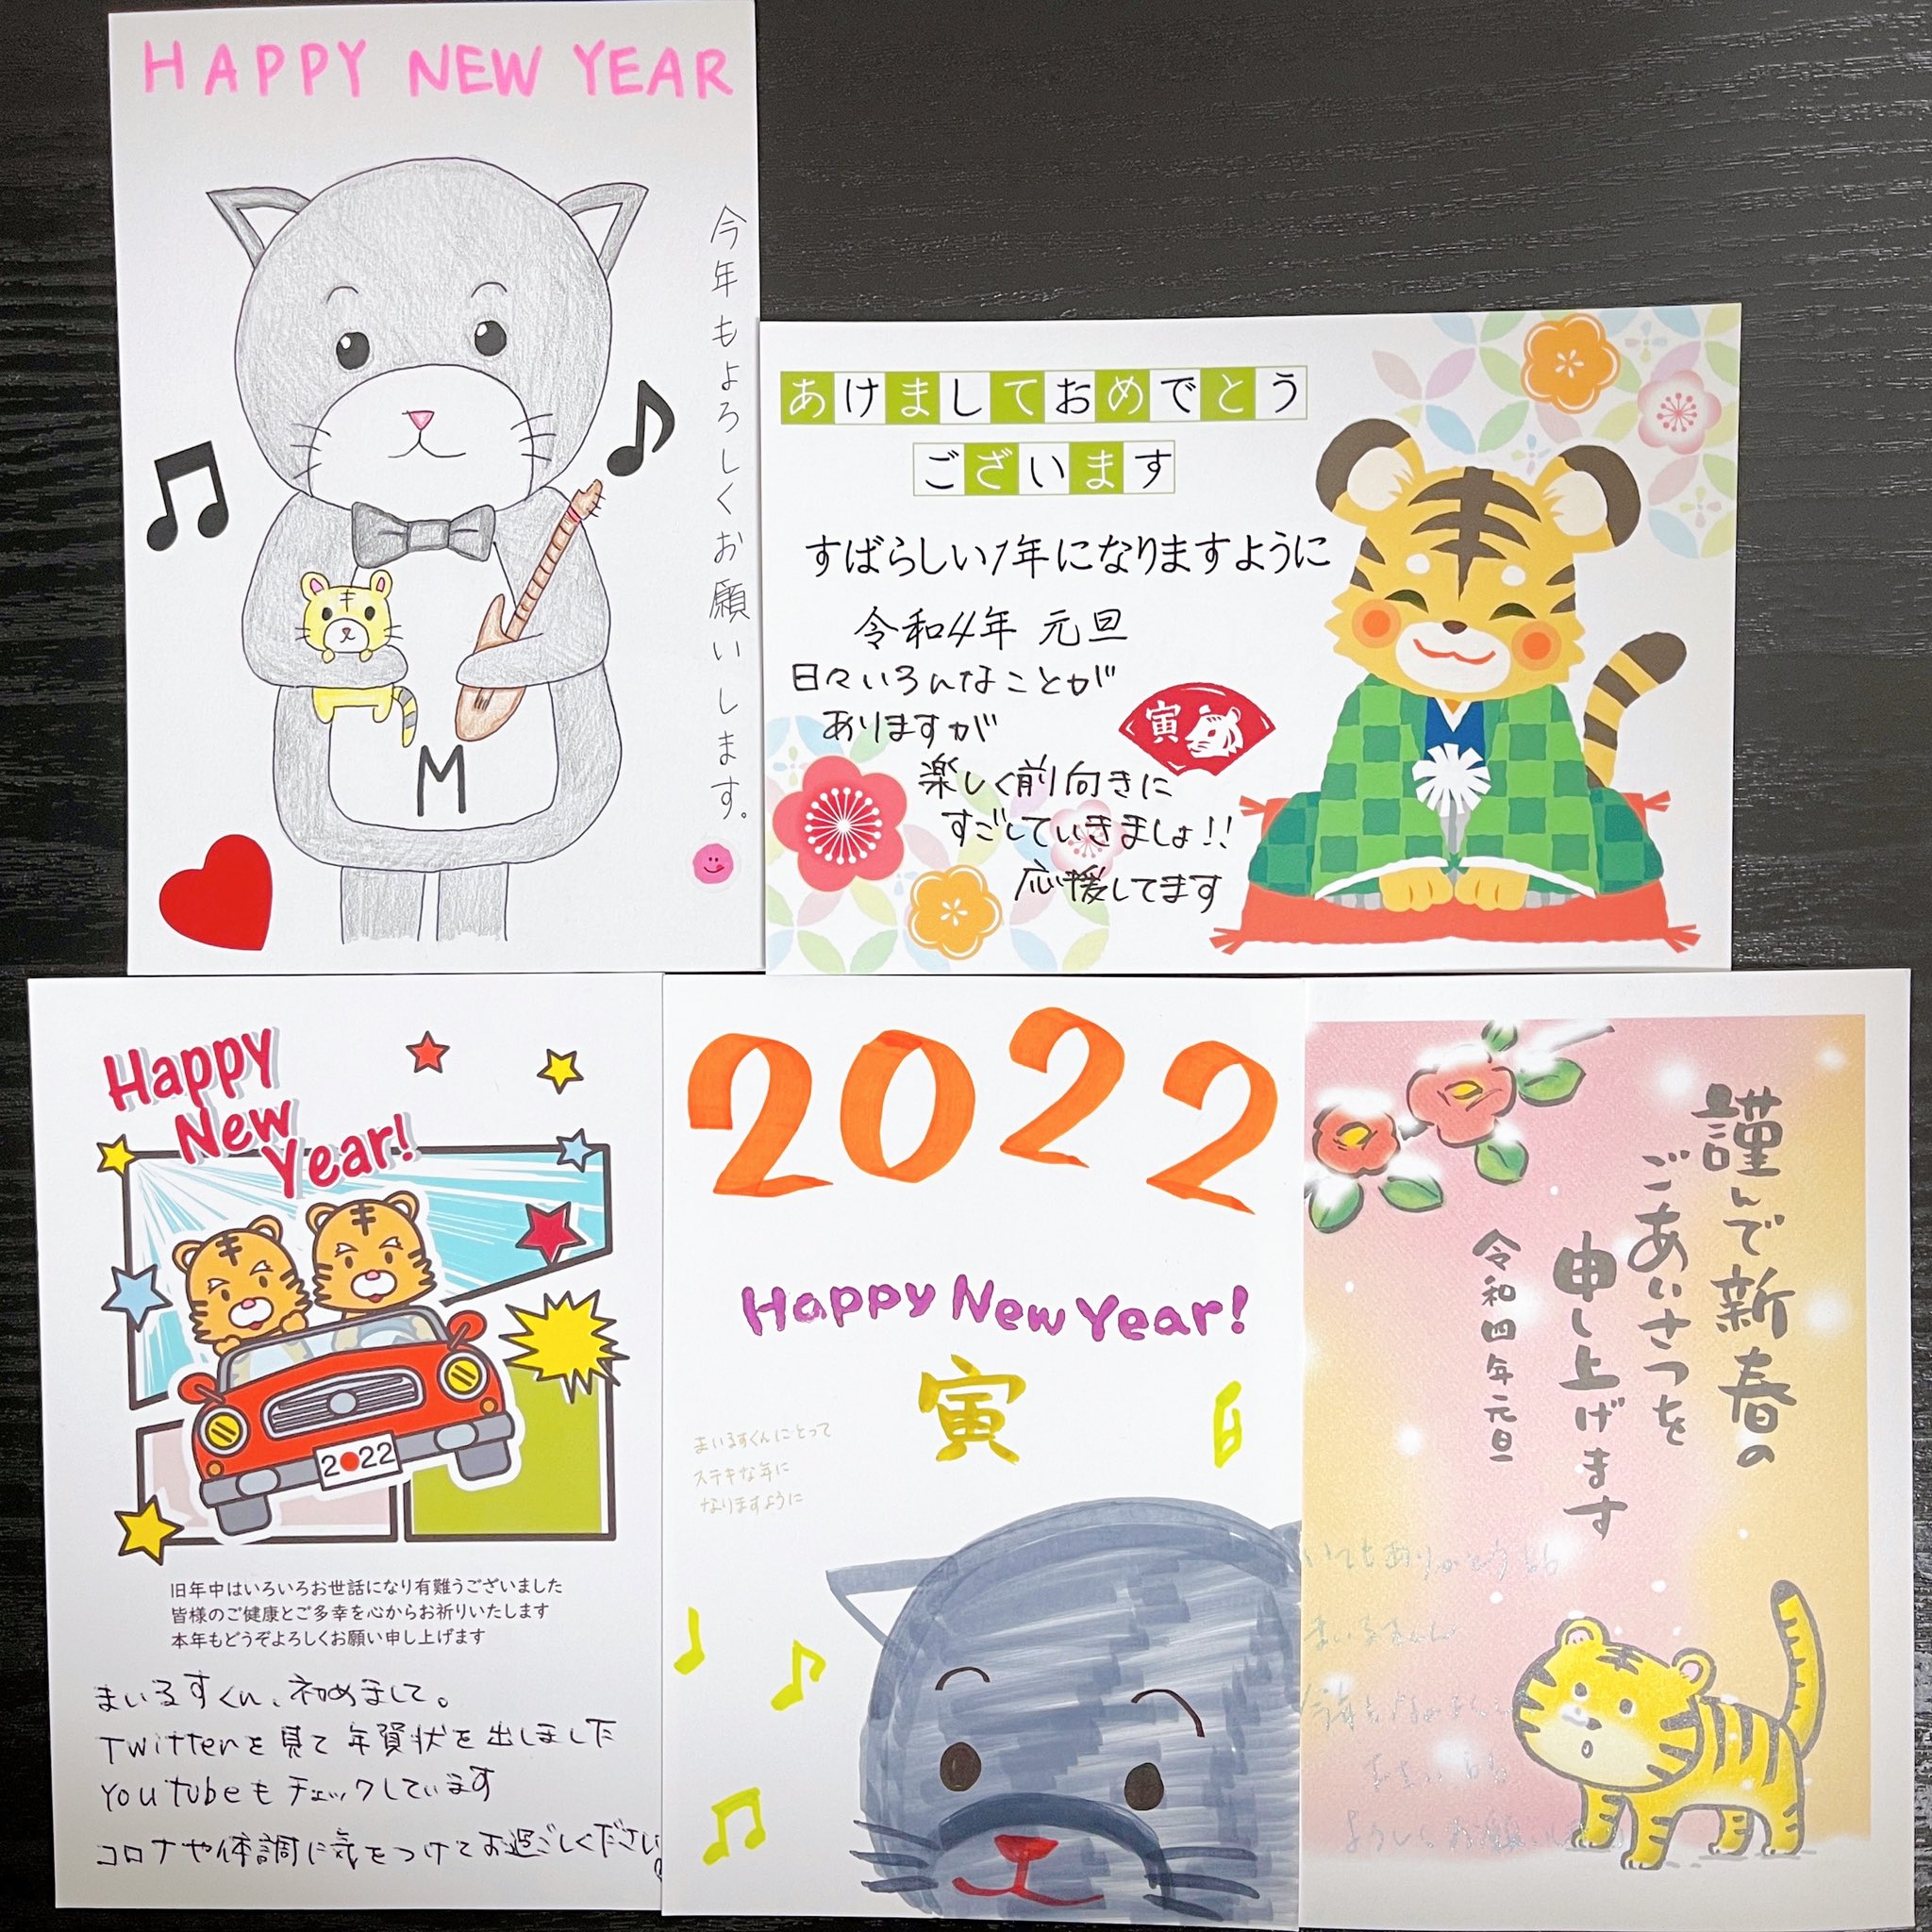 HAPPY NEW YEAR
今年もよろしくお願いします。
M
あけましておめでとう
ございます
すばらしい1年になりますように
令和4年 元旦
日々いろんなことが
ありますが
楽しく前向きに
すごしていきましょ!!
応援してます
寅
Happy
New
Year!
2022
旧年中はいろいろお世話になり有難うございました
皆様のご健康とご多幸を心からお祈りいたします
本年もどうぞよろしくお願い申し上げます
まいるすくん、初めまして。
Twitterを見て年賀状を出しました
YouTubeもチェックしています
コロナや体調に気をつけてお過ごしください
2022
Happy New Year!
寅
まいるすくんにとって
ステキな年に
なりますように
謹んで新春の
ごあいさつを
申し上げます
令和四年元旦
ありがとう
よろしくお願いします